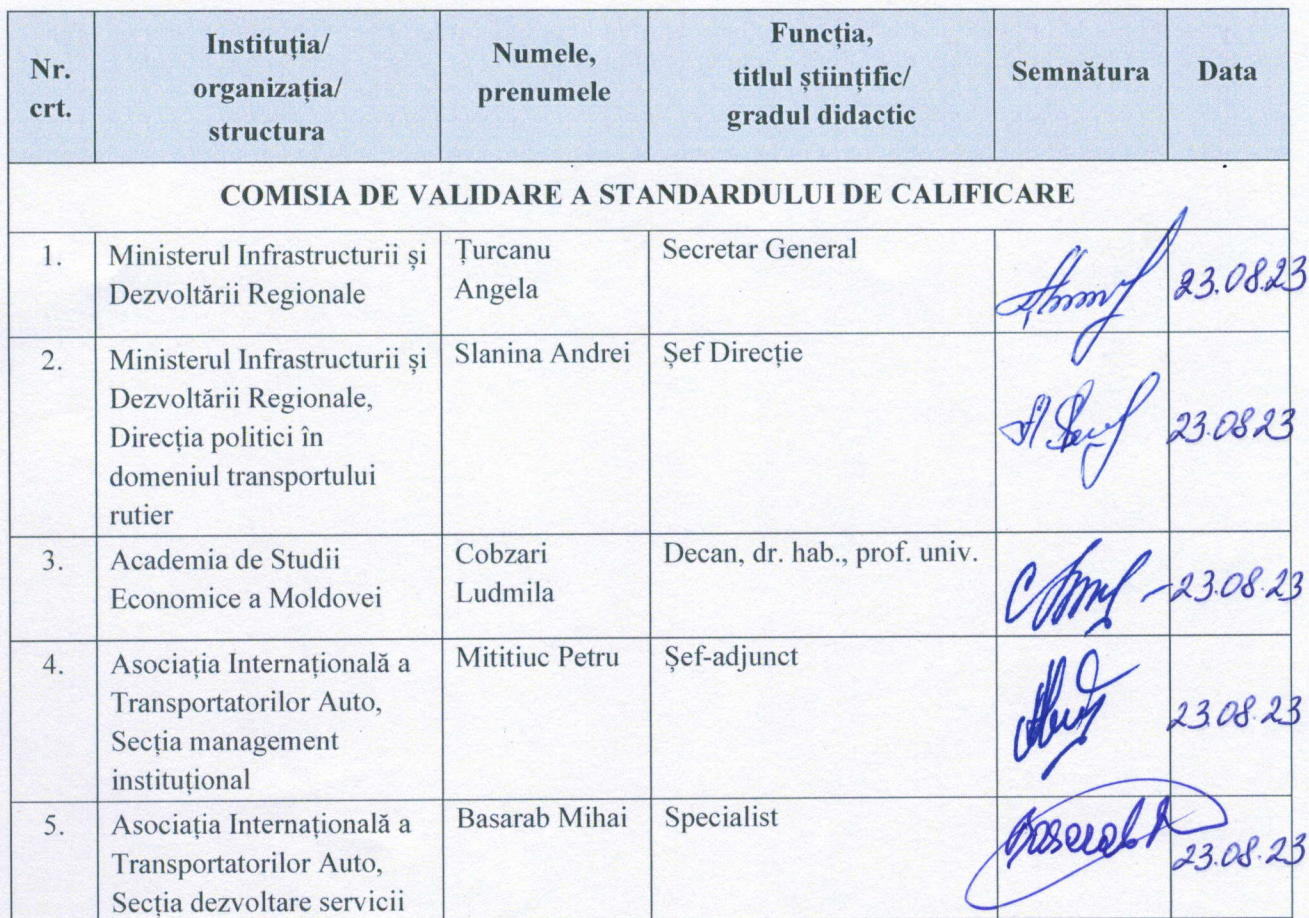 Nr.
crt.
Instituția/
organizația/
structura
Numele,
prenumele
Funcția,
titlul științific/
gradul didactic
Semnătura
Data
COMISIA DE VALIDARE A STANDARDULUI DE CALIFICARE
1.
Ministerul Infrastructurii și
Dezvoltării Regionale
Țurcanu
Angela
Secretar General
23.08.23
2.
Ministerul Infrastructurii și
Dezvoltării Regionale,
Direcția politici în
domeniul transportului
rutier
Slanina Andrei
Șef Direcție
23.08.23
3.
Academia de Studii
Economice a Moldovei
Cobzari
Ludmila
Decan, dr. hab., prof. univ.
23.08.23
4.
Asociația Internațională a
Transportatorilor Auto,
Secția management
instituțional
Mititiuc Petru
Șef-adjunct
23.08.23
5.
Asociația Internațională a
Transportatorilor Auto,
Secția dezvoltare servicii
Basarab Mihai
Specialist
23.08.23